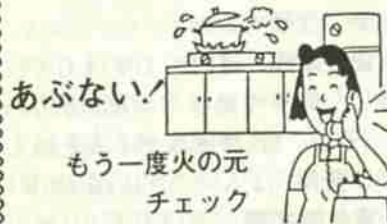 あぶない!
もう一度火の元
チェック